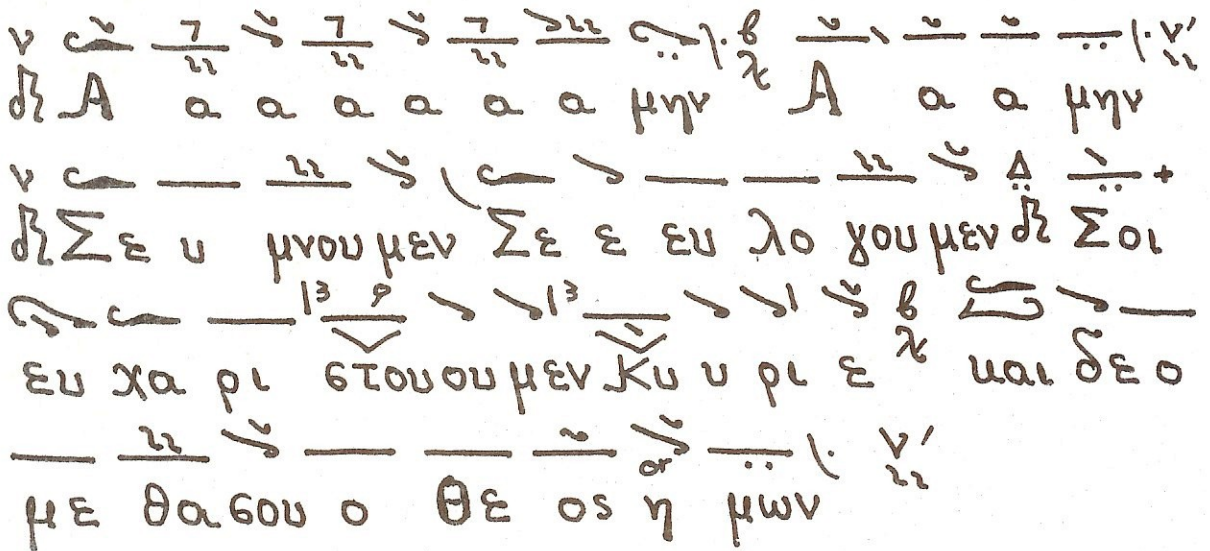 Α α α α α α μην Α α α μην
Σε υ μνου μεν Σε ε ευ λο γου μεν Σοι
ευ χα ρι στου ου μεν Κυ υ ρι ε και δε ο
με θα σου ο Θε ος η μων